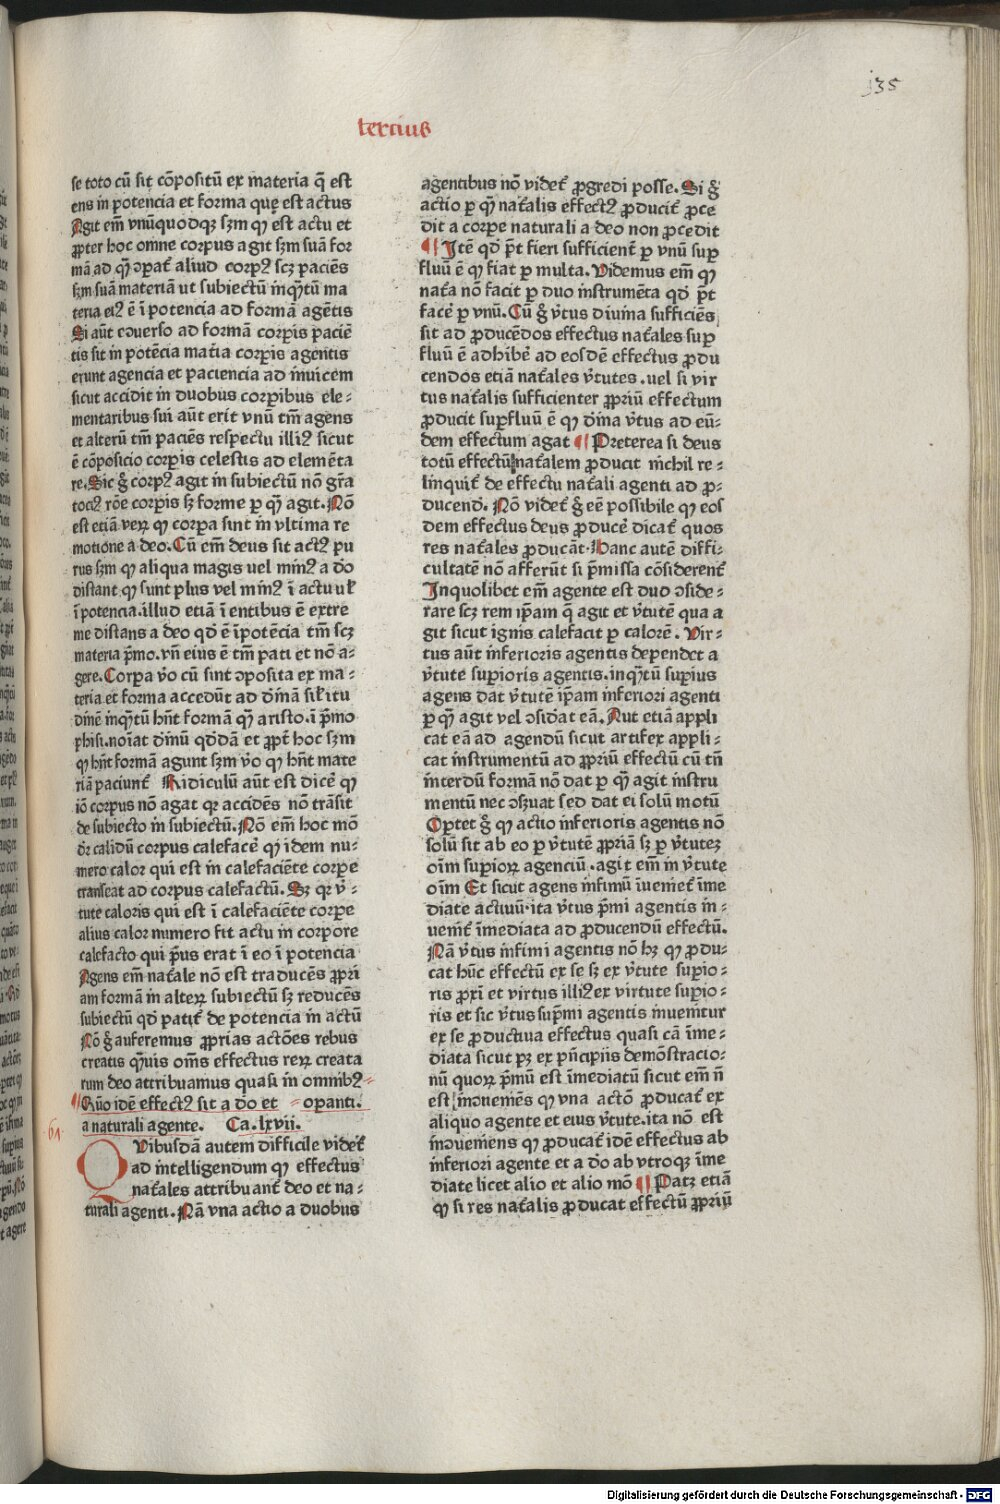 135
tercius
se toto cū sit cōpositū ex materia q̄ est
ens in potencia et forma que est actus
Agit em̄ vnūquodqꝫ ẜm qꝙ est actu et
ꝓpter hoc omne corpus agit ẜm suā for
mā ad quā ꝯpat᷑ aliud corpꝰ scꝫ paciēs
ẜm suā materiā ut subiectū inq̄tū ma
teria eiꝰ ē ī potencia ad formā agētis
Si aūt ecōuerso ad formā corꝑis paciē
tis sit in potēcia mat̕ia corꝑis agentis
erunt agencia et paciencia ad inuicem
sicut accidit in duobus corꝑibus ele⸗
mentaribus sui aūt erit vnū tm̄ agens
et alterū tm̄ paciēs respectu illiꝰ sicut
ē cōposicio corꝑis celestis ad elemēta
re. Sic g̊ corpꝰ agit in subiectū nō gr̄a
tociꝰ rōe corꝑis sꝫ forme ꝑ quā agit. Nō
est etiā veꝝ qꝙ corꝑa sunt in vltima re
motione a deo. Cū em̄ deus sit actꝰ pu
rus ẜm qꝙ aliqua magis uel minꝰ a dō
distant qꝙ sunt plus vel minꝰ ī actu ul̕
ī potencia. illud etiā ī entibus ē extre
me distans a deo qd̕ ē īpotēcia tm̄ scꝫ
materia p̄mo. vn̄ eius ē tm̄ pati et nō a⸗
gere. Corꝑa v̊o cū sint ꝯposita ex ma⸗
teria et forma accedūt ad diīnā sil̕itu
dinē inq̄tū hn̄t formā quā aristo. ī p̄mo
phisi. noīat diīnū qd̕dā et ꝓpt̕ hoc ẜm
qꝙ hn̄t formā agunt ẜm v̊o qꝙ hn̄t mate
riā paciunt᷑ Ridiculū aūt est dicē qꝙ
iō corpus nō agat qꝛ accidēs nō trāsit
de subiecto in subiectū. Nō em̄ hoc mō
dr̄ calidū corpus calefacē qꝙ idem nu⸗
mero calor qui est in calefaciēte corꝑe
transeat ad corpus calefactū. Sꝫ qꝛ v̕⸗
tute caloris qui est ī calefaciēte corꝑe
alius calor numero fit actu in corpore
calefacto qui p̄us erat ī eo ī potencia
Agens em̄ nat̕ale nō est traducēs ꝓpri
am formā in alteꝝ subiectū sꝫ reducēs
subiectū qd̕ patit᷑ de potencia in actū
Nō g̊ auferemus ꝓprias actōes rebus
creatis q̄uis om̄s effectus reꝝ creata
rum deo attribuamus quasi in omnibꝰ⸗
¶Quō idē effectꝰ sit a dō et ⸗ oꝑanti.
a naturali agente. Ca. lxvii.
61
QVibusdā autem difficile videt᷑
ad intelligendum qꝙ effectus
nat̕ales attribuant᷑ deo et na⸗
turali agenti. Nā vna actio a duobus
agentibus nō videt᷑ ꝓgredi posse. Si g̊
actio ꝑ quā nat̕alis effectꝰ ꝓducit᷑ ꝓce
dit a corꝑe naturali a deo non ꝓcedit
¶Itē qd̕ p̄t fieri sufficient̕ ꝑ vnū suꝑ
fluū ē qꝙ fiat ꝑ multa. Videmus em̄ qꝙ
nat̕a nō facit ꝑ duo instrumēta qd̕ p̄t
facē ꝑ vnū. Cū g̊ v̕tus diuina sufficiēs
sit ad ꝓducēdos effectus nat̕ales suꝑ
fluū ē adhibē ad eosdē effectus ꝓdu
cendos etiā nat̕ales v̕tutes. uel si vir
tus nat̕alis sufficienter ꝓpriū effectum
ꝓducit suꝑfluū ē qꝙ diīna v̕tus ad eū⸗
dem effectum agat ¶Preterea si deus
totū effectū nat̕alem ꝓducit nichil re⸗
linquit᷑ de effectu nat̕ali agenti ad ꝓ⸗
ducend̕. Nō videt᷑ g̊ eē possibile qꝙ eos
dem effectus deus ꝓducē dicat᷑ quos
res nat̕ales ꝓducāt. Hanc autē diffi⸗
cultatē nō afferūt si p̄missa cōsiderent᷑
Inquolibet em̄ agente est duo ꝯside⸗
rare scꝫ rem ip̄am q̄ agit et v̕tutē qua a
git sicut ignis calefacit ꝑ calorē. Vir⸗
tus aūt inferioris agentis dependet a
v̕tute suꝑioris agentis. inq̄tū suꝑius
agens dat v̕tutē ip̄am inferiori agenti
ꝑ quā agit vel ꝯẜuat eā. Aut etiā appli
cat eā ad agendū sicut artifex appli⸗
cat instrumentū ad ꝓpriū effectū cū tn̄
interdū formā nō dat ꝑ quā agit instru
mentū nec ꝯẜuat sed dat ei solū motū
Oꝑtet g̊ qꝙ actio inferioris agentis nō
solū sit ab eo ꝑ v̕tutē ꝓpriā sꝫ ꝑ v̕tuteꝫ
oīm suꝑioꝝ agenciū. agit em̄ in v̕tute
oīm Et sicut agens infimū īuenit᷑ ime
diate actiuū. ita v̕tus p̄mi agentis in⸗
uenit᷑ īmediata ad ꝓducendū effectū.
Nā v̕tus infimi agentis nō hꝫ qꝙ ꝓdu⸗
cat hūc effectū ex se sꝫ ex v̕tute suꝑio⸗
ris ꝓxi et virtus illiꝰ ex virtute suꝑio⸗
ris et sic v̕tus supͥmi agentis inuenitur
ex se ꝓductiua effectus quasi cā īme⸗
diata sicut pꝫ ex pͥncipiis demōstracio⸗
nū quoꝝ p̄mū est īmediatū sicut em̄ n̄
est inꝯueniēs qꝙ vna actō ꝓducat᷑ ex
aliquo agente et eius v̕tute. ita nō est
inꝯueniens qꝙ ꝓducat᷑ idē effectus ab
inferiori agente et a dō ab vtroqꝫ īme
diate licet alio et alio mō ¶Patꝫ etiā
qꝙ si res nat̕alis ꝓducat effectū ꝓpriū
Digitalisierung gefördert durch die Deutsche Forschungsgemeinschaft - DFG